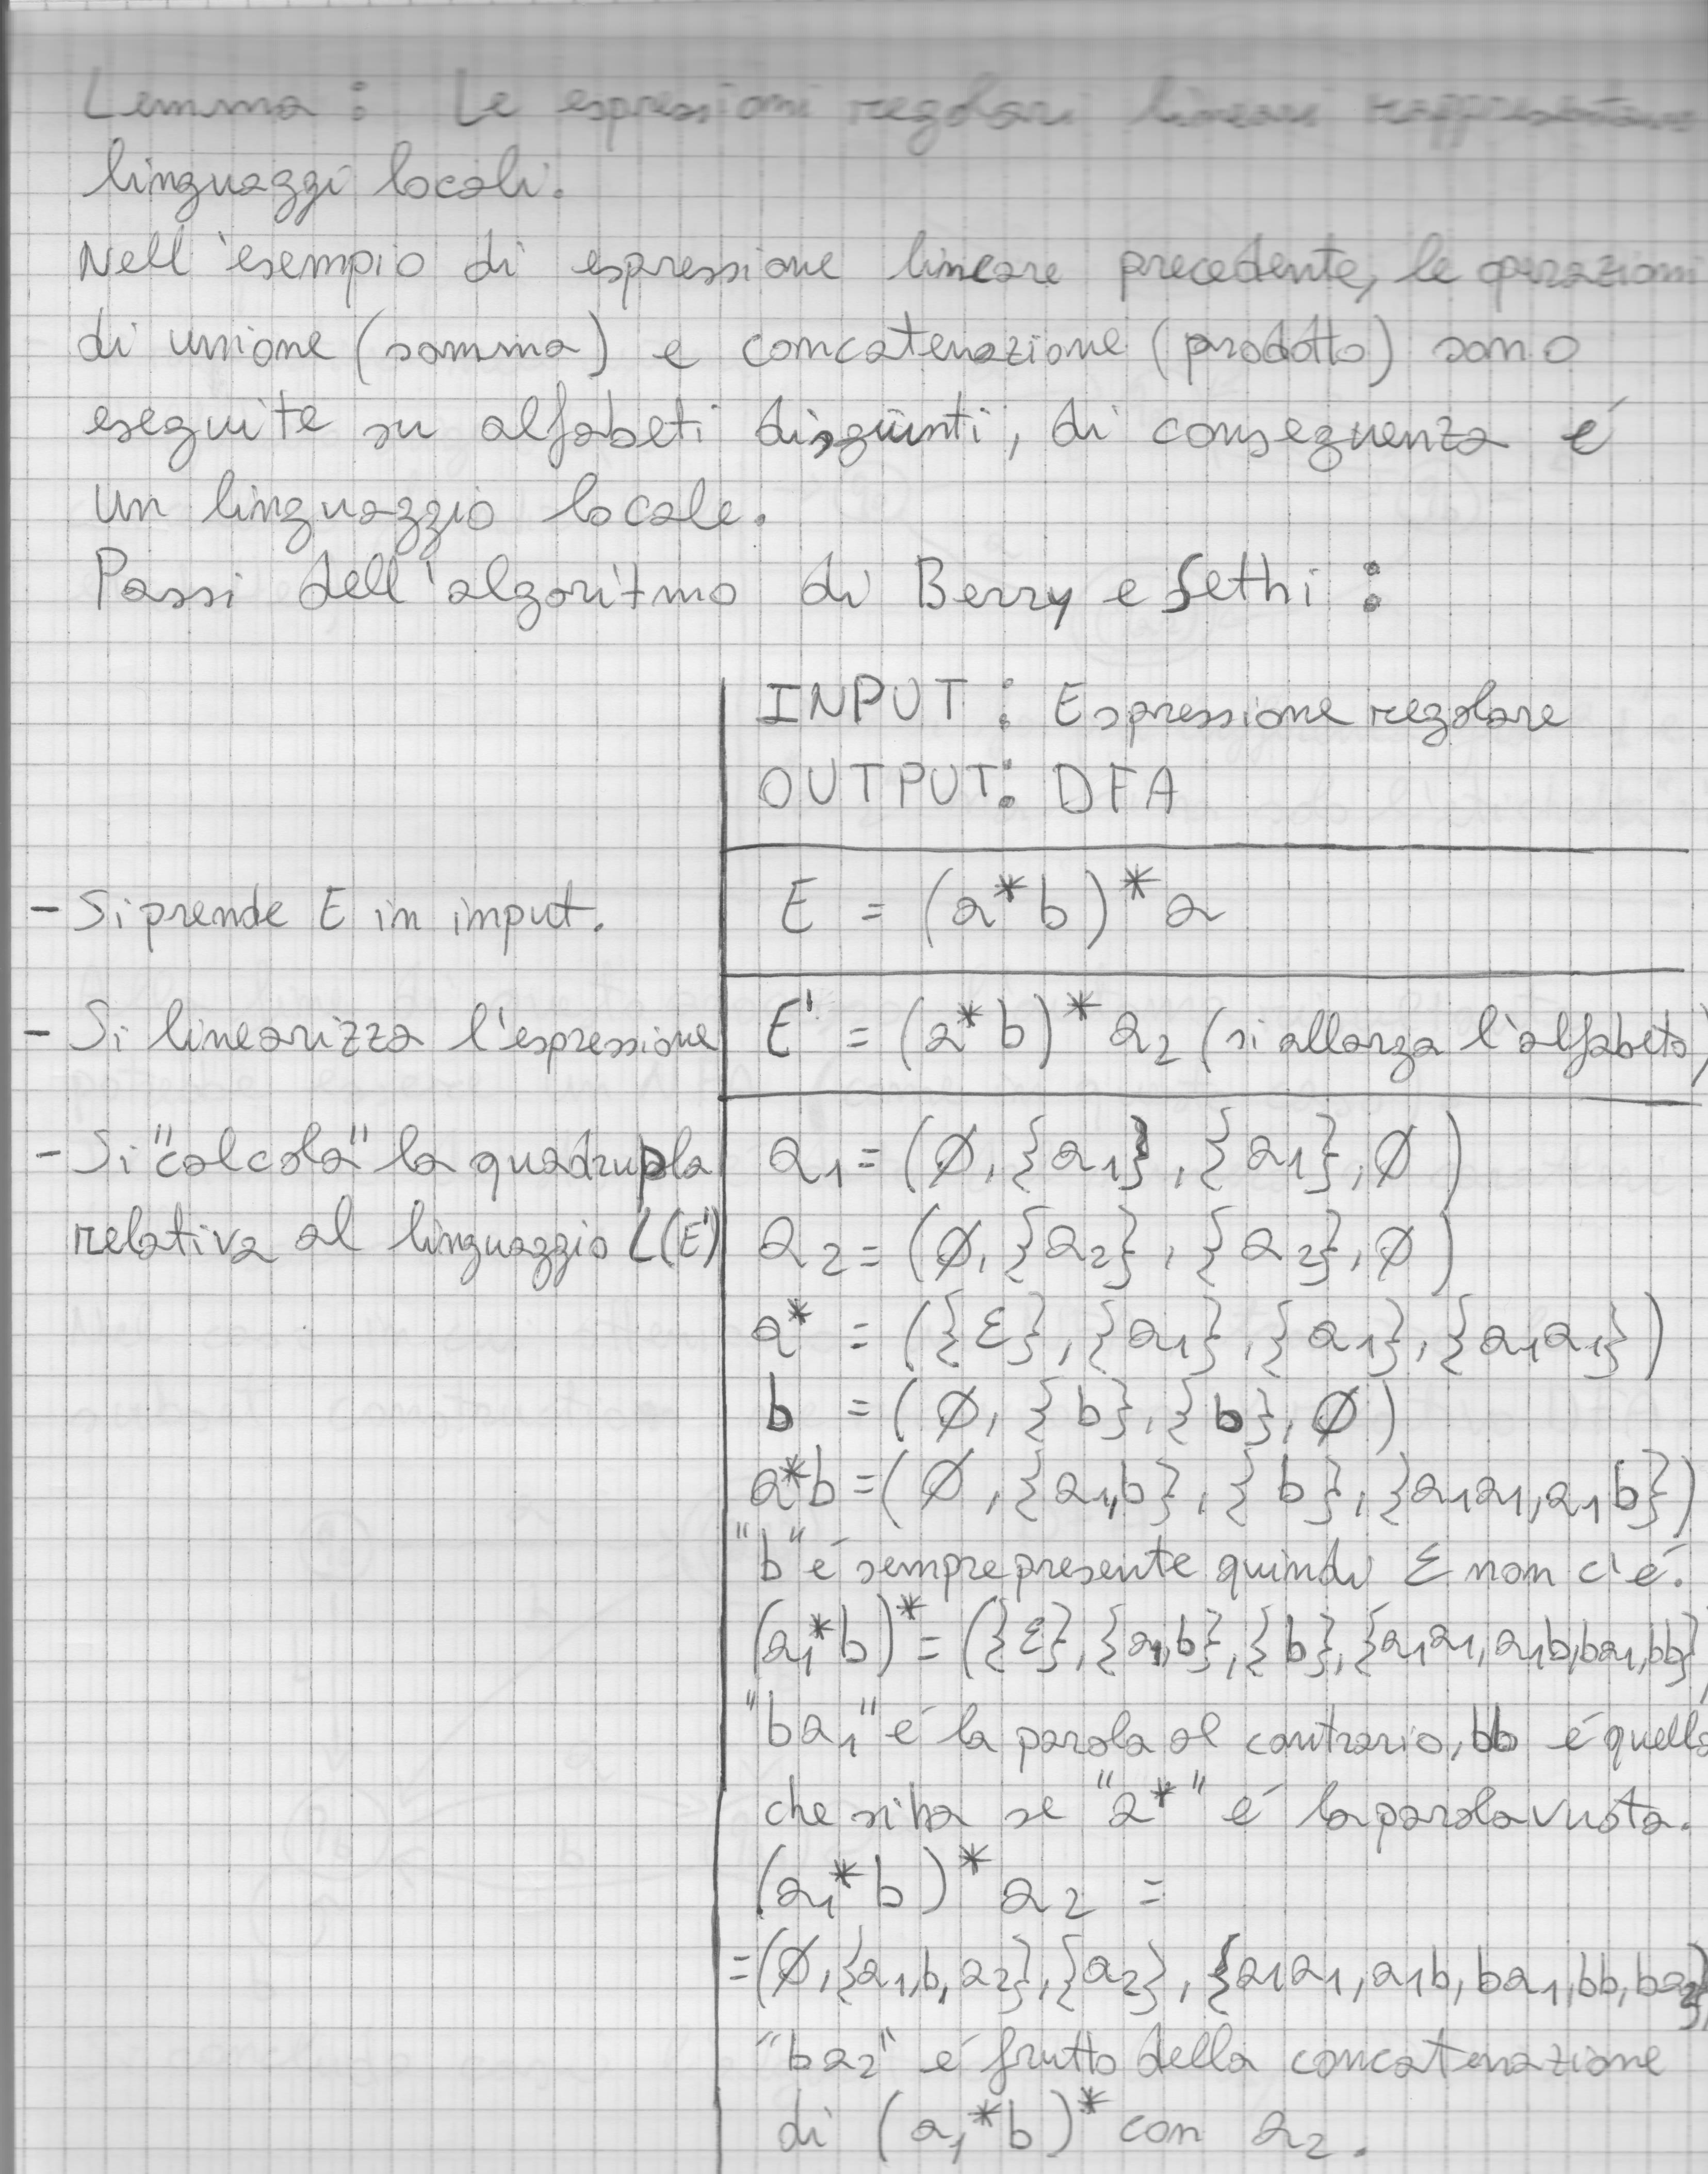 Lemma: Le espressioni regolari lineari rappresentano
linguaggi locali.
Nell'esempio di espressione lineare precedente, le operazioni
di unione (somma) e concatenazione (prodotto) sono
eseguite su alfabeti disgiunti, di conseguenza é
un linguaggio locale.
Passi dell'algoritmo di Berry e Sethi:
INPUT: Espressione regolare
OUTPUT: DFA
- Si prende E in input.
E = (a*b)*a
- Si linearizza l'espressione
E' = (a*b)*a₂ (si allarga l'alfabeto)
- Si "calcola" la quadrupla
relativa al linguaggio L(E')
a₁ = (∅, {a₁}, {a₁}, ∅)
a₂ = (∅, {a₂}, {a₂}, ∅)
a* = ({ε}, {a₁}, {a₁}, {a₁a₁})
b = (∅, {b}, {b}, ∅)
a*b = (∅, {a₁,b}, {b}, {a₁a₁, a₁b})
"b" é sempre presente quindi ε non c'é.
(a₁*b)* = ({ε}, {a₁,b}, {b}, {a₁a₁, a₁b, ba₁, bb})
"ba₁" é la parola al contrario, bb é quella
che si ha se "a*" é la parola vuota.
(a₁*b)*a₂ =
= (∅, {a₁, b, a₂}, {a₂}, {a₁a₁, a₁b, ba₁, bb, ba₂})
"ba₂" é frutto della concatenazione
di (a₁*b)* con a₂.